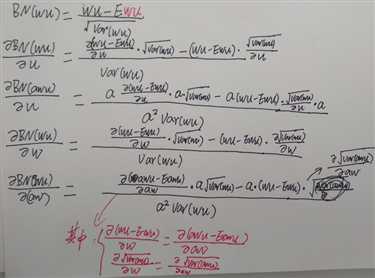 BN(wu) = (wu - Ewu) / √Var(wu)
∂BN(wu)/∂u = (∂(wu - Ewu)/∂u · √Var(wu) - (wu - Ewu) · √Var(wu)/∂u) / Var(wu)
∂BN(awu)/∂u = (a ∂(wu - Ewu)/∂u · a · √Var(wu) - a(wu - Ewu) · √Var(wu)/∂u · a) / a² Var(wu)
∂BN(wu)/∂w = (∂(wu - Ewu)/∂w · √Var(wu) - (wu - Ewu) · ∂√Var(wu)/∂w) / Var(wu)
∂BN(wu)/∂(aw) = (∂(awu - Eawu)/∂aw · a√Var(wu) - a·(wu - Ewu) ·) / a² Var(wu)
∂√Var(awu)/∂aw
其中 { ∂(wu - Ewu)/∂w = ∂(awu - Eawu)/∂aw
∂√Var(wu)/∂w = ∂√Var(awu)/∂aw